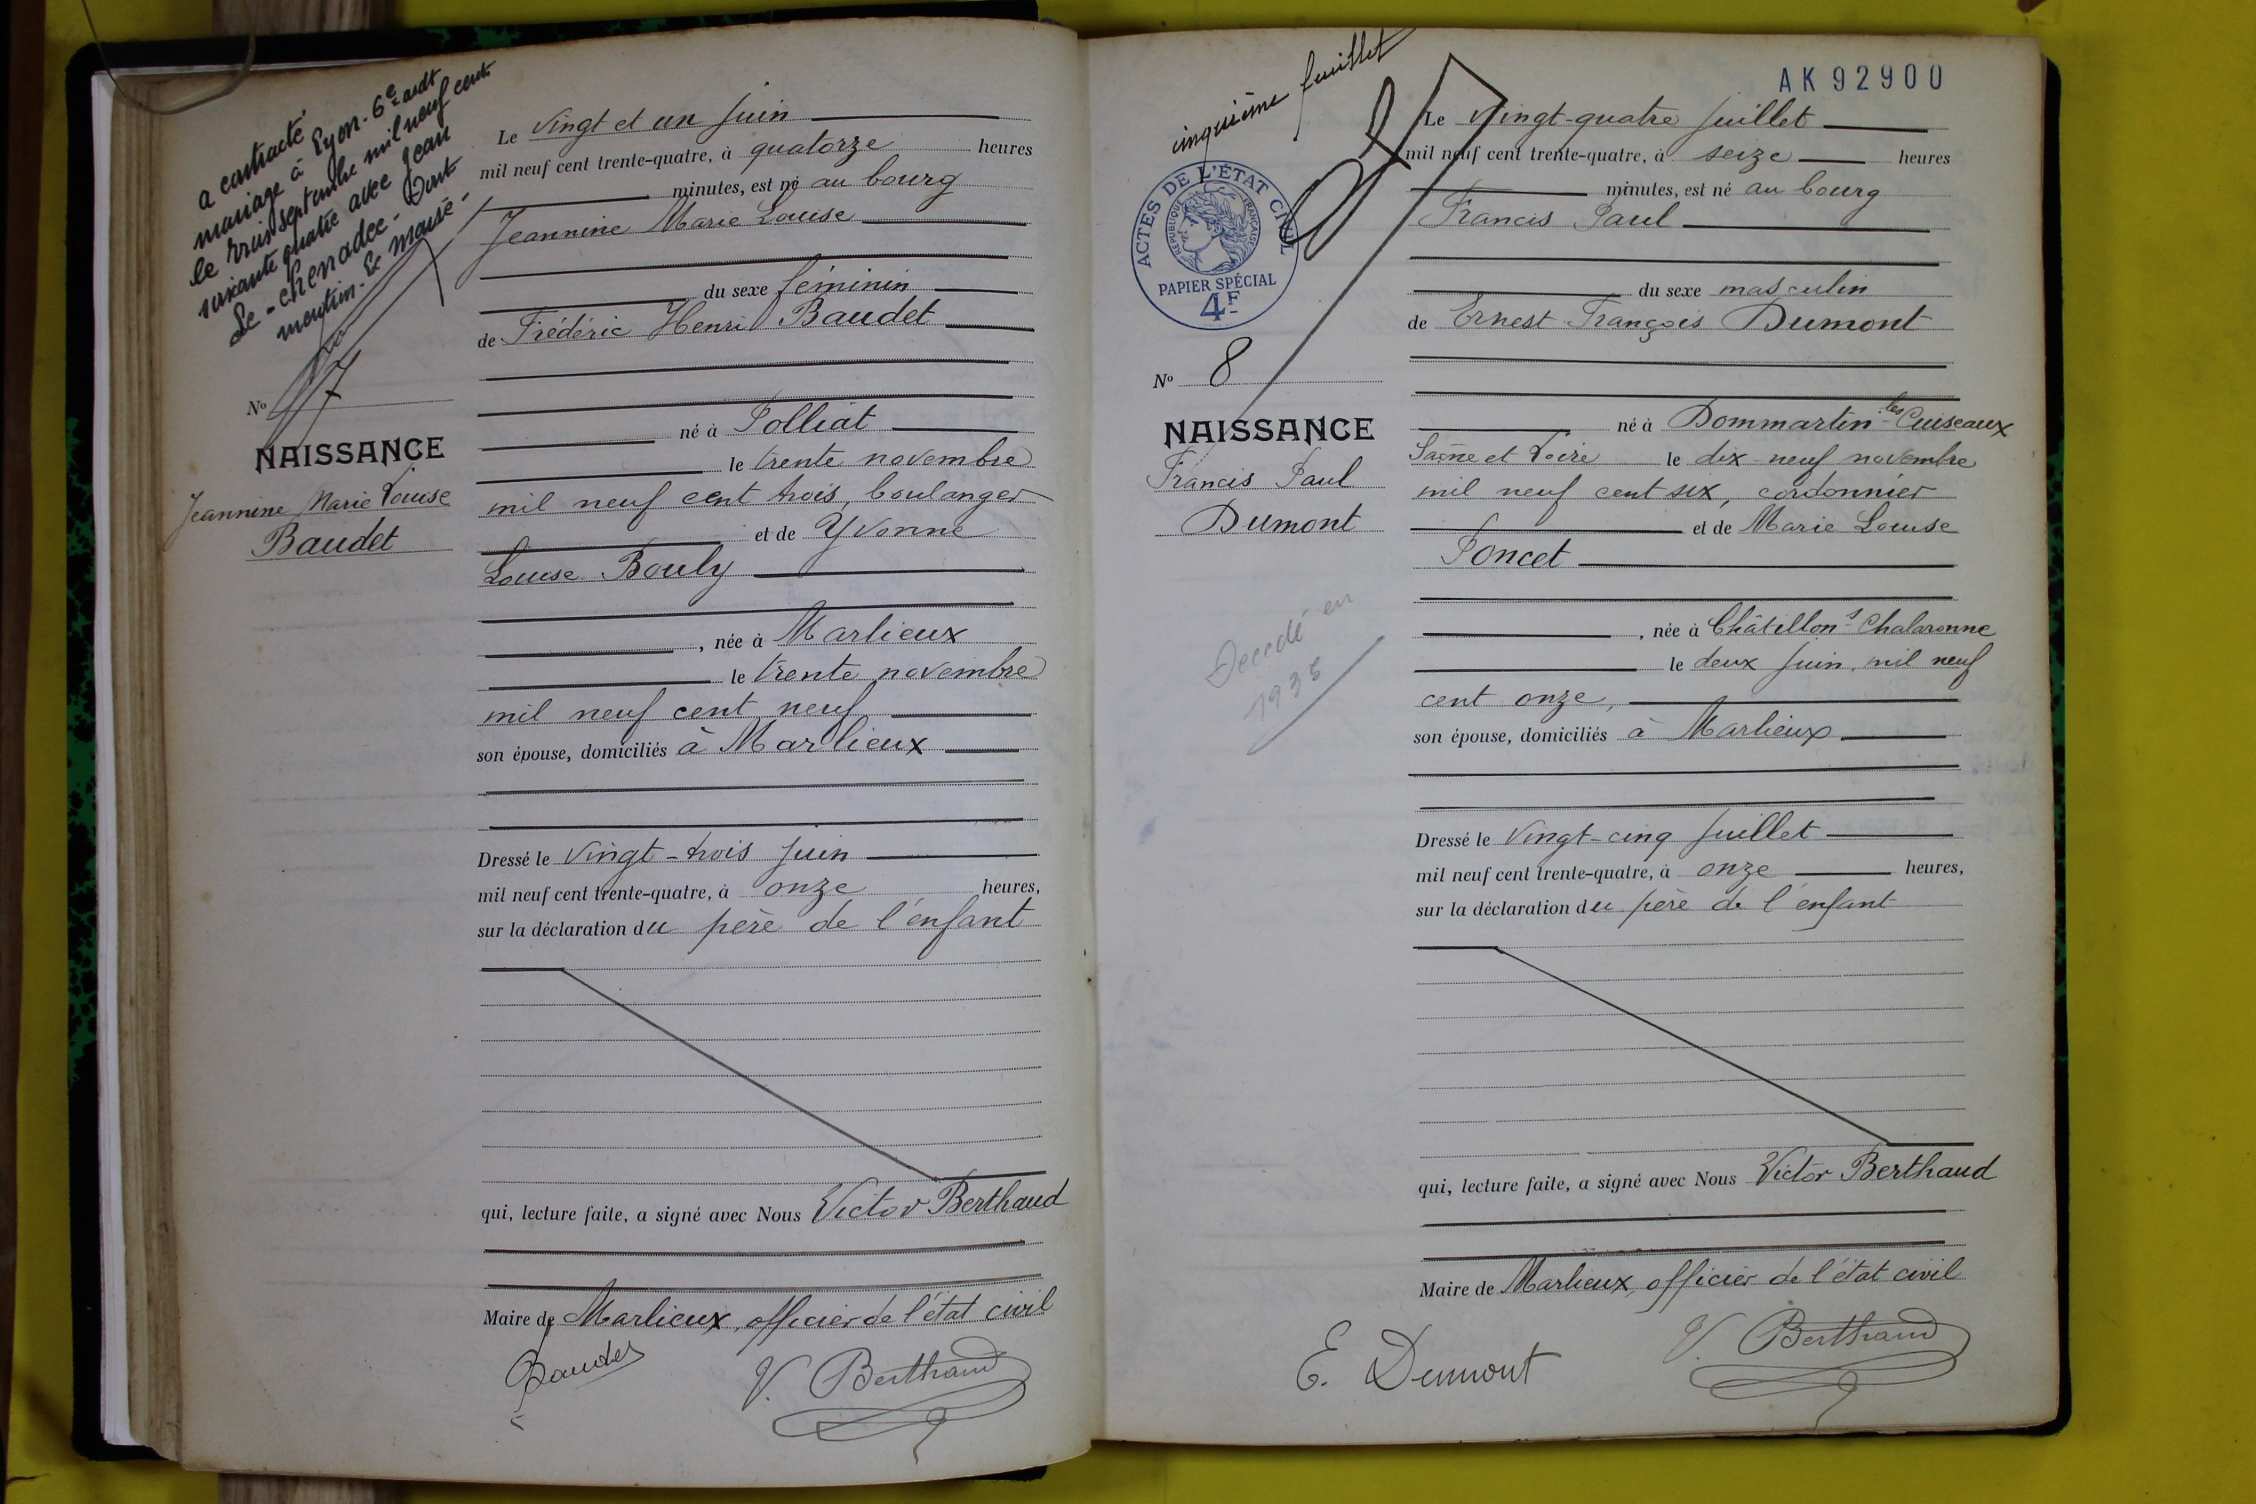 a contracté
mariage à Lyon-6e ardt
le trois septembre mil neuf cent
soixante quatre avec Jean
Le-Chenadec- Dont
mention-
No 7
NAISSANCE
Jeannine Marie Louise
Baudet
Le vingt et un juin
mil neuf cent trente-quatre, à quatorze heures
minutes, est né au bourg
Jeannine Marie Louise
du sexe féminin
de Frédéric Henri Baudet
né à Polliat
le trente novembre
mil neuf cent trois, boulanger
et de Yvonne
Louise Bouly
, née à Marlieux
le trente novembre
mil neuf cent neuf
son épouse, domiciliés à Marlieux
Dressé le vingt-trois juin
mil neuf cent trente-quatre, à onze heures,
sur la déclaration du père de l'enfant
qui, lecture faite, a signé avec Nous Victor Berthaud
Maire de Marlieux, officier de l'état civil
Baudet
V. Berthaud
cinquième feuillet
ACTES DE L'ÉTAT CIVIL
RÉPUBLIQUE FRANÇAISE
PAPIER SPÉCIAL
4F
No 8
NAISSANCE
Francis Paul
Dumont
Decedé en
AK 92900
Le vingt-quatre juillet
mil neuf cent trente-quatre, à seize heures
minutes, est né au bourg
Francis Paul
du sexe masculin
de Ernest François Dumont
né à Dommartin-les-Cuiseaux
Saône et Loire le dix-neuf novembre
mil neuf cent six, cordonnier
et de Marie Louise
Poncet
, née à Châtillon s Chalaronne
le deux juin mil neuf
cent onze,
son épouse, domiciliés à Marlieux
Dressé le vingt-cinq juillet
mil neuf cent trente-quatre, à onze heures,
sur la déclaration du père de l'enfant
qui, lecture faite, a signé avec Nous Victor Berthaud
Maire de Marlieux, officier de l'état civil
E. Dumont
V. Berthaud